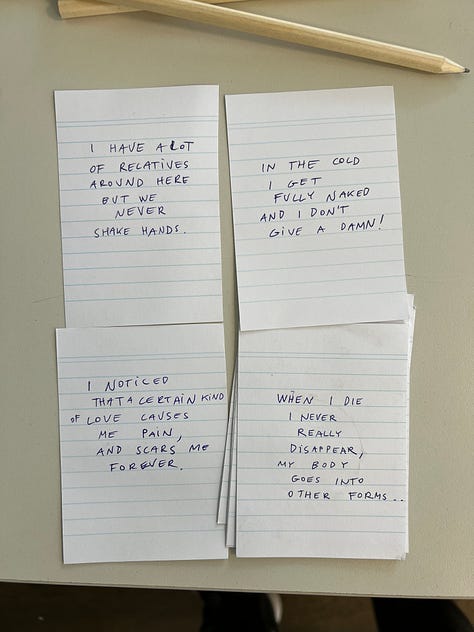 I HAVE A LOT
OF RELATIVES
AROUND HERE
BUT WE
NEVER
SHAKE HANDS.
IN THE COLD
I GET
FULLY NAKED
AND I DON'T
GIVE A DAMN!
I NOTICED
THAT A CERTAIN KIND
OF LOVE CAUSES
ME PAIN,
AND SCARS ME
FOREVER.
WHEN I DIE
I NEVER
REALLY
DISAPPEAR,
MY BODY
GOES INTO
OTHER FORMS..